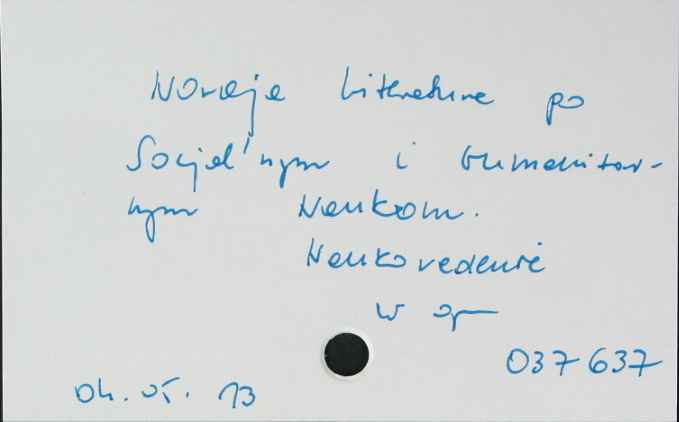 Novaja literatura po
Social'nym i Gumanitar-
nym Naukam.
Naukovedenie
w op
037637
04. 05. 13